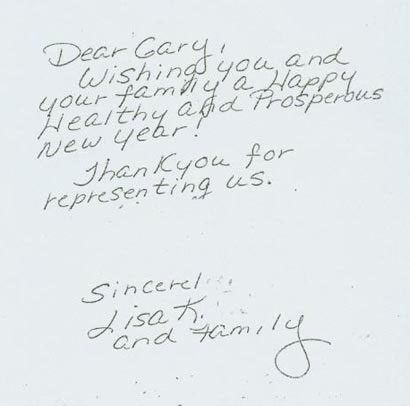 Dear Gary,
Wishing you and
your family a Happy
Healthy and Prosperous
New Year!
Thank you for
representing us.
Sincerel
Lisa K.
and Family